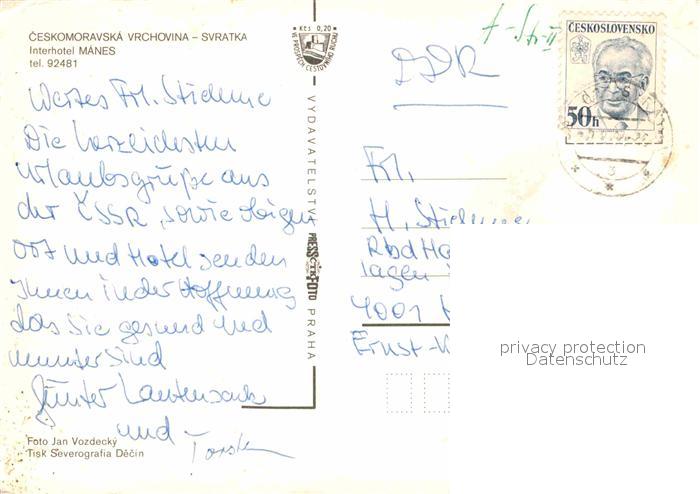 ČESKOMORAVSKÁ VRCHOVINA – SVRATKA
Interhotel MÁNES
tel. 92481
Wertes Frl.
Die herzlichsten
Urlaubsgrüße aus
der ČSSR, sowie obigen
Ort und Hotel senden
Ihnen in der Hoffnung
das Sie gesund und
munter sind
Günter Lautensack
und Torsten
Foto Jan Vozdecký
Tisk Severografia Děčín
Kčs 0,20
VE PROSPĚCH CESTOVNÍHO RUCHU
VYDAVATELSTVÍ PRESSFOTO PRAHA
DDR
ČESKOSLOVENSKO
50h
Frl.
H.
Rbd
lagen
4001
Ernst-
privacy protection
Datenschutz